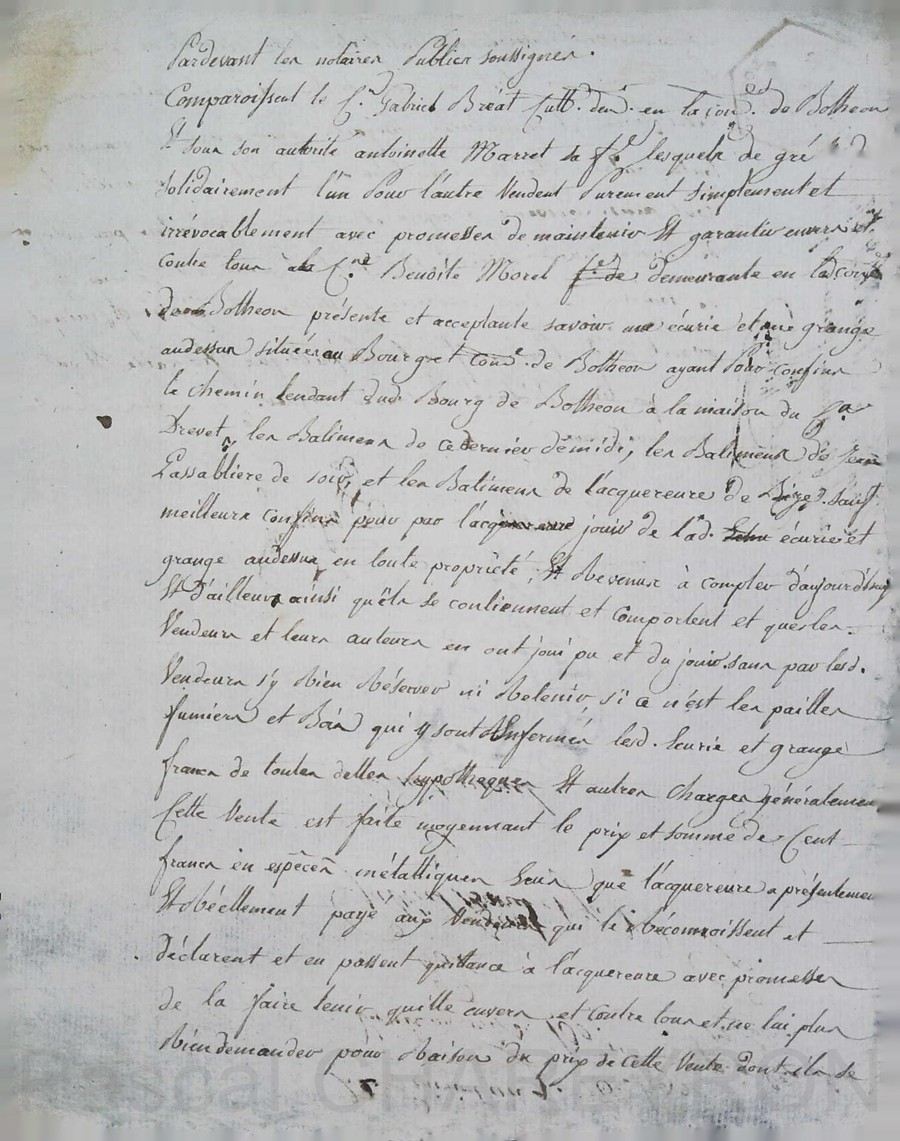 Pardevant les notaires Publics soussignés.
Comparoissent le C.n Gabriel Bréat Cult.r dem.t en la com.e de Botheon
Et sous son autorité antoinette Marret sa f.e lesquels de gré
Solidairement l'un Pour l'autre Vendent Purement Simplement et
irrévocablement avec promesses de maintenir Et garantir envers et
Contre tous a la C.ne Benoîte Morel f.e de demeurante en lad. com.e
de Botheon présente et acceptante savoir une écurie et une grange
audessus située au Bourg et Com.e de Botheon ayant Pour confins
le chemin tendant dud. Bourg de Botheon à la maison du C.n
Drevet, les Batimens de ce dernier de midi, les Batimens de Jean
Lassabliere de soir, et les Batimens de l'acquereure de Bize, Sauf
meilleurs confins pour par l'acquereure jouir de lad. écurie et
grange audessus en toute propriété, Et Revenus à compter d'aujourd'huy
Et D'ailleurs ainsi qu'ils se contiennent et Comportent et que les
Vendeurs et leurs auteurs en ont joui pu et du jouir. sans par lesd.
Vendeurs s'y Rien Réserver ni Retenir si ce n'est les pailles
fumiers et Bois qui y sont Renfermés lesd. Ecurie et grange
francs de toutes dettes hypotheques Et autres Charges généralement
Cette Vente est faite moyennant le prix et somme de Cent
francs en espèces métalliques que l'acquereure a présentement
Et Réellement payé aux Vendeurs qui le Réconnoissent et
Déclarent et en passent quittance à l'acquereure avec promesses
de la faire tenir quitte envers et contre tous et ne lui plus
Rien demander pour Raison du prix de cette Vente dont ils se